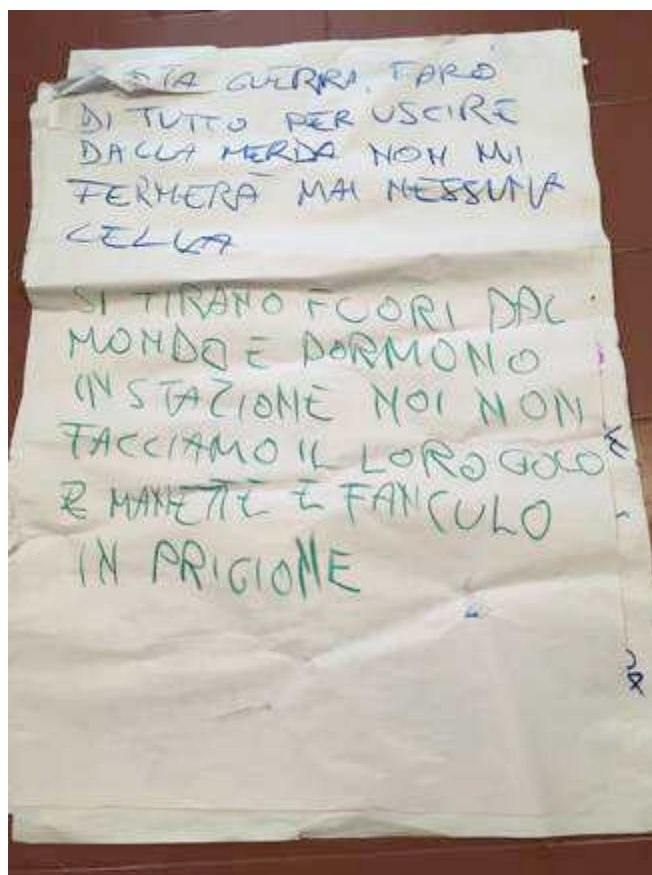 GUERRA, FARÒ
DI TUTTO PER USCIRE
DALLA MERDA NON MI
FERMERÀ MAI NESSUNA
CELLA
SI TIRANO FUORI DAL
MONDO E DORMONO
IN STAZIONE NOI NON
FACCIAMO IL LORO GIOCO
E MANETTE E FANCULO
IN PRIGIONE